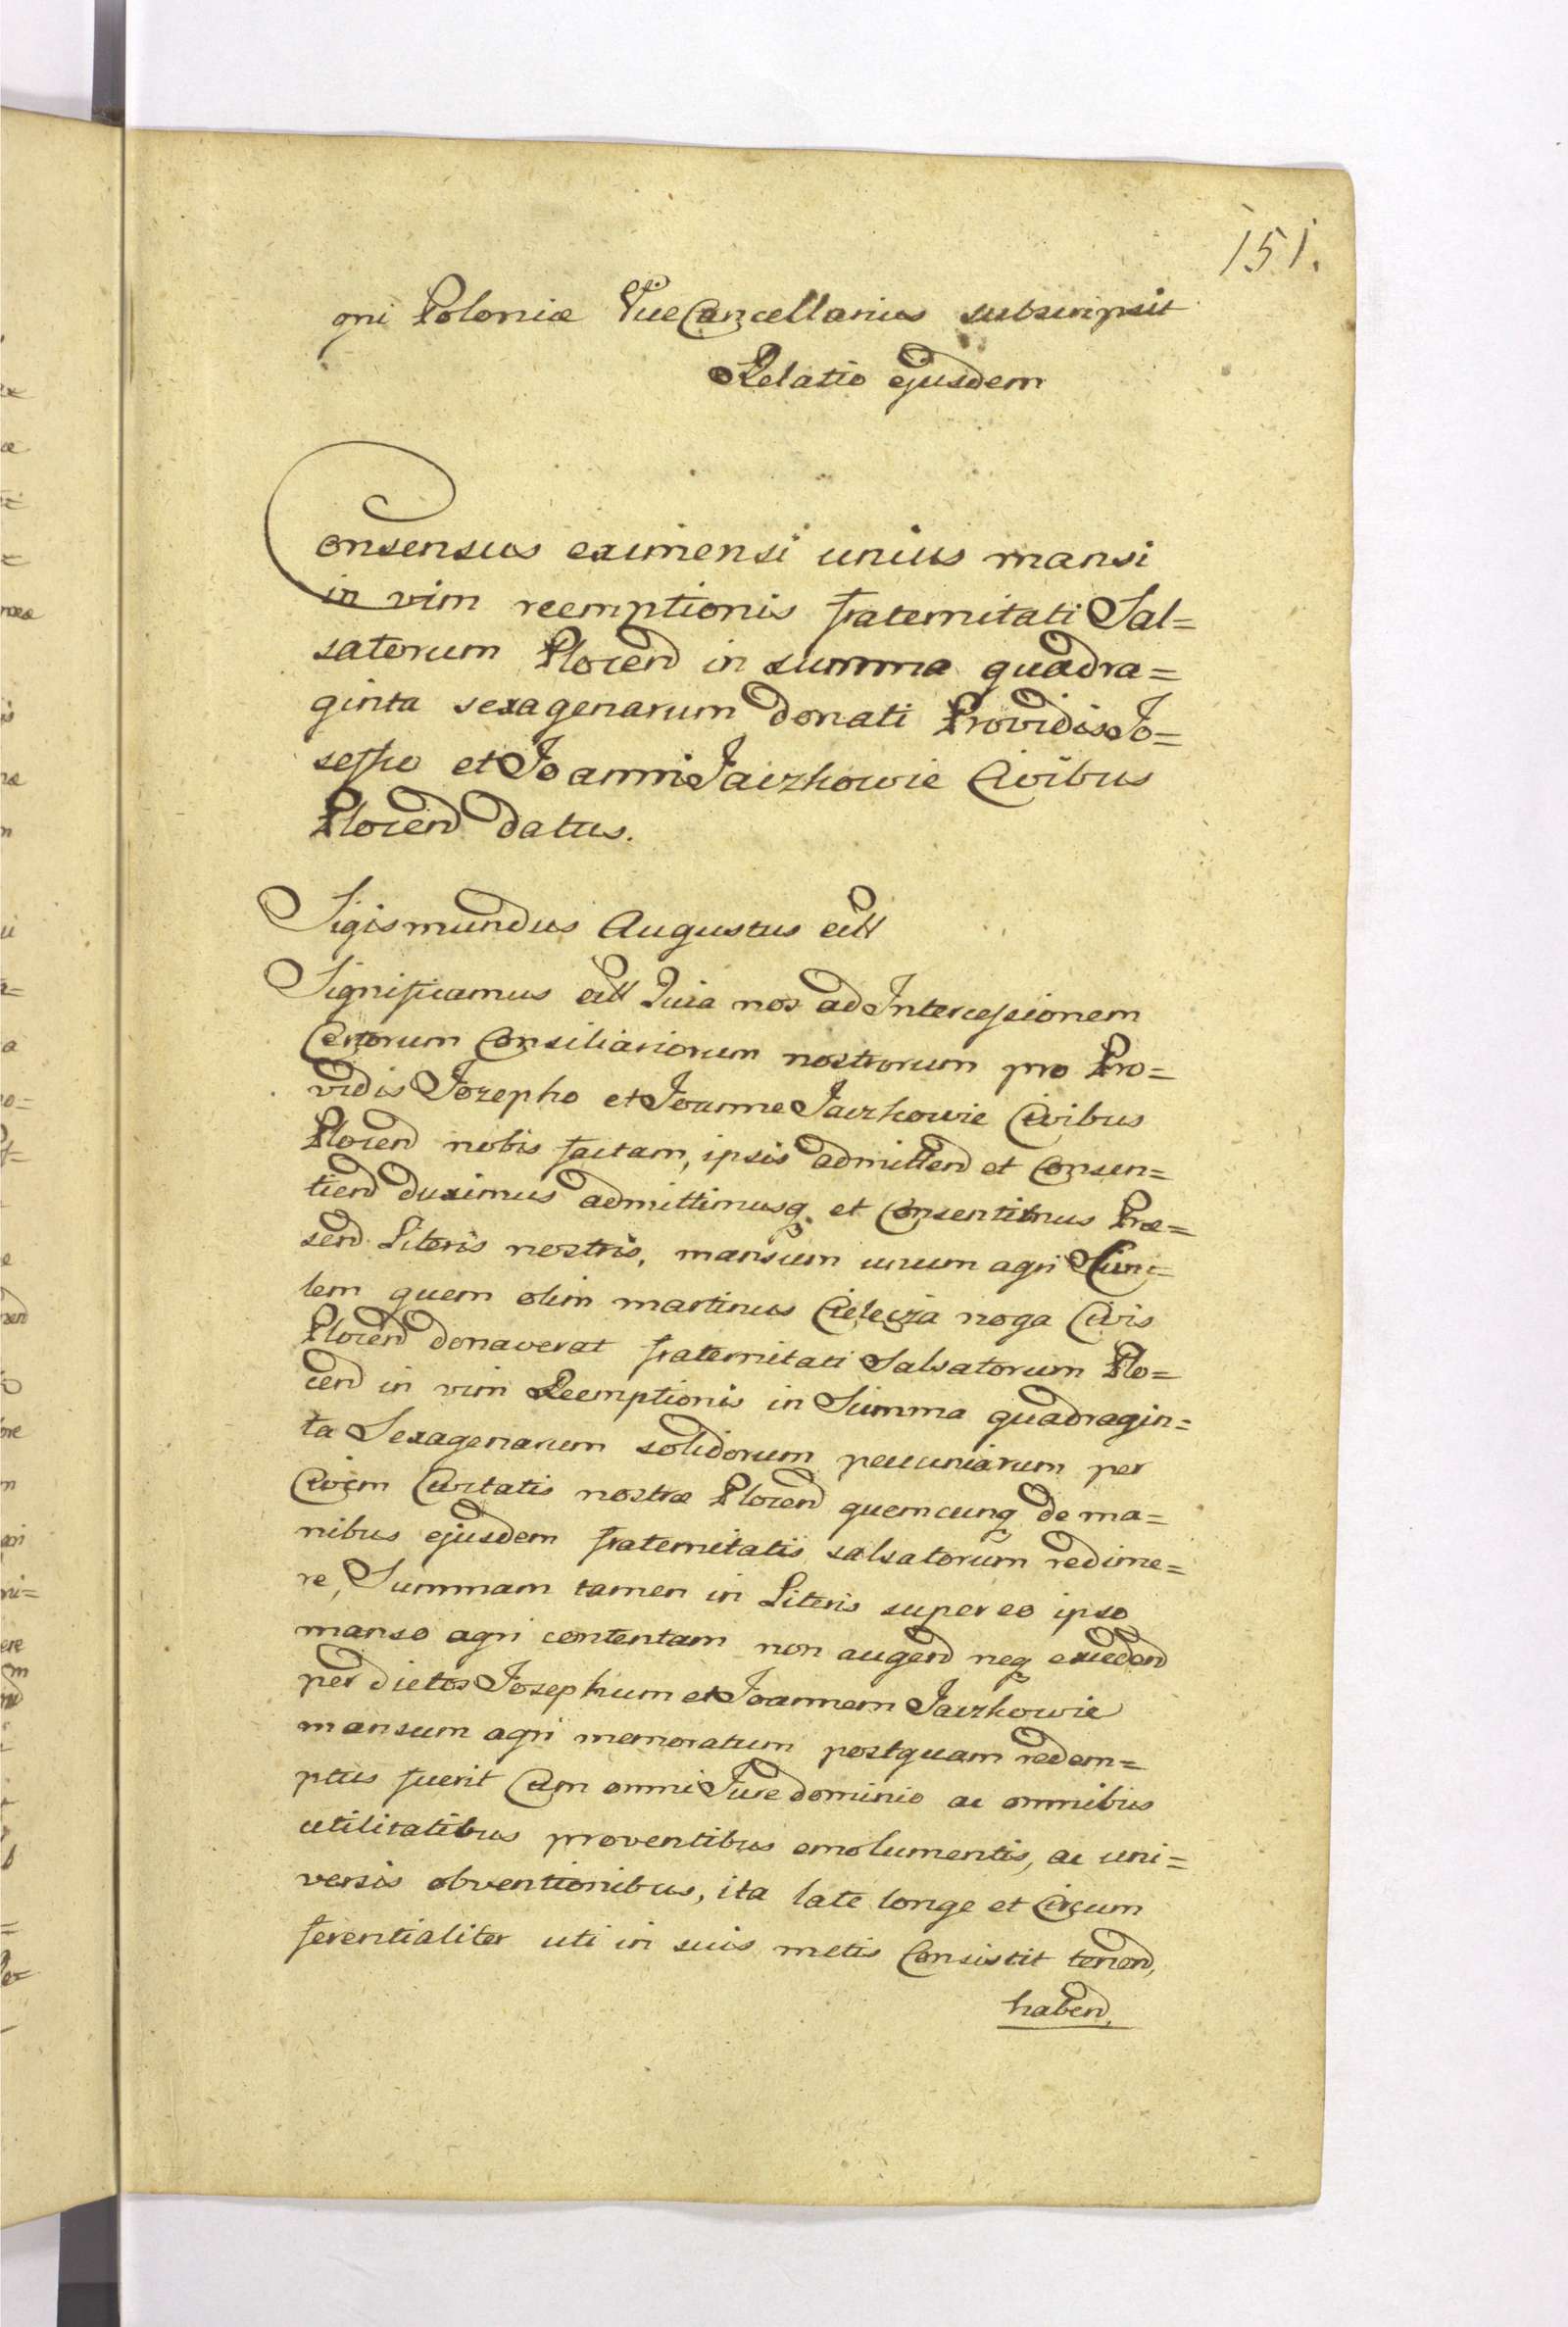 151.
gni Poloniæ ViceCancellarius subscripsit
Relatio ejusdem
Consensus eximensi unius mansi
in vim reemptionis fraternitati Sal=
satorum Plocen in summa quadra=
ginta sexagenarum donati Providis Jo=
sepho et Joanni Jaczkowie Civibus
Plocen datus.
Sigismundus Augustus
Significamus Quia nos ad Intercessionem
Certorum Consiliariorum nostrorum pro Pro=
vidis Jozepho et Joanne Jaczkowie Civibus
Plocen nobis factam, ipsis admitten et Consen=
tien duximus admittimusq et Consentimus Præ=
sen Literis nostris, mansum unum agri
lem quem olim martinus Cielecza noga Civis
Plocen donaverat fraternitati Salsatorum Plo=
cen in vim Reemptionis in Summa quadragin=
ta Sexagenarum solidorum pecuniarum per
Civem Civitatis nostræ Plocen quemcunq de ma=
nibus ejusdem fraternitatis salsatorum redime=
re, Summam tamen in Literis super eo ipso
manso agri contentam non augen neq exceden
per dictos Josephum et Joannem Jaczkowie
mansum agri memoratum postquam redem=
ptus fuerit Cum omni Jure dominio ac omnibus
utilitatibus proventibus emolumentis, ac uni=
versis obventionibus, ita late longe et Circum
ferentialiter uti in suis metis Consistit tenen,
haben,